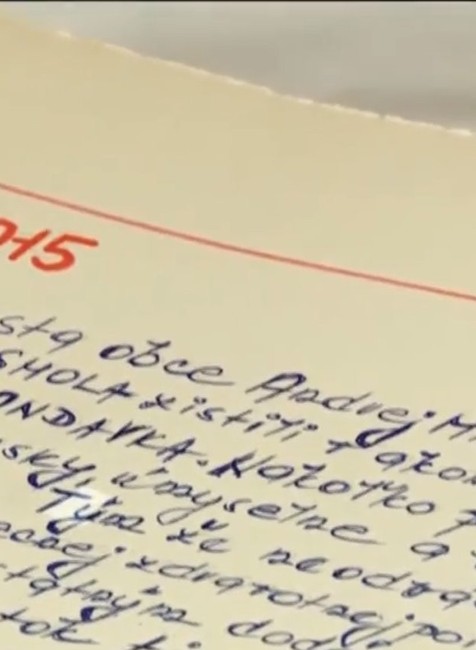 015
sta obce Andrej M
SHOLA zistiti, ako
ONDAVKA. Nakoľko
sky, úmyselne a
Tým že neodra
zdravotnej po
štátnym dod
tok